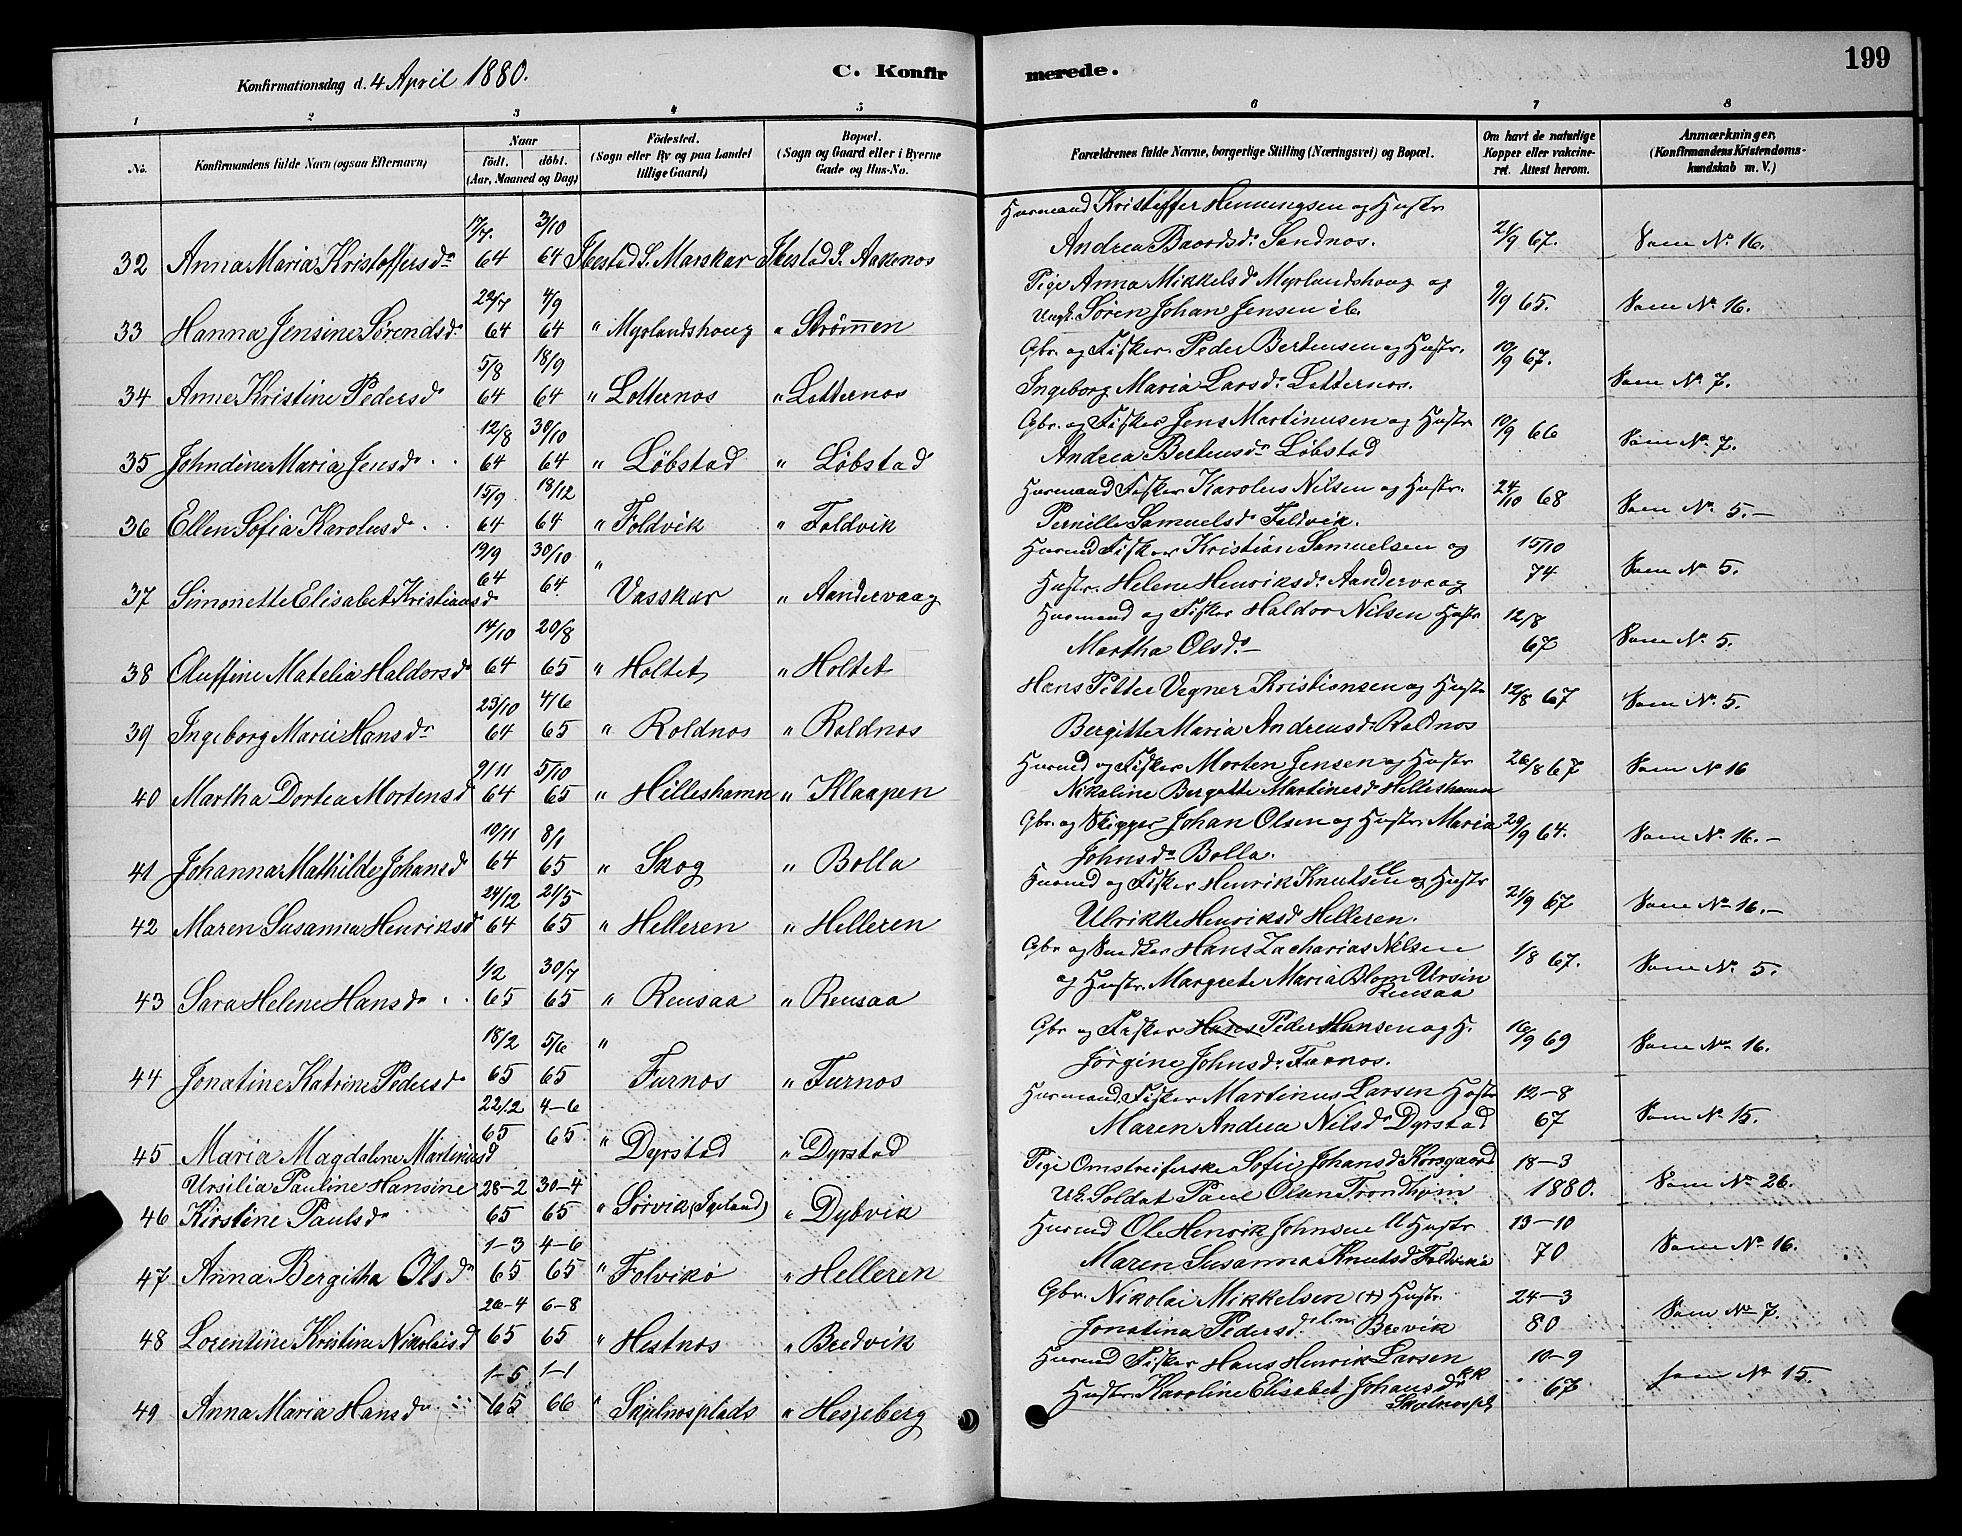 Konfirmationsdag d. 4 April 1880. C. Konfirmerede. 199
1 2 3 4 5 6 7 8
No. Konfirmandens fulde Navn (ogsaa Efternavn) Naar født. døbt. (Aar, Maaned og Dag) Fødested. (Sogn eller By og paa Landet tillige Gaard) Bopæl. (Sogn og Gaard eller i Byerne Gade og Hus-No. Forældrenes fulde Navne, borgerlige Stilling (Næringsvei) og Bopæl. Om havt de naturlige Kopper eller vakcineret. Attest herom. Anmærkninger, (Konfirmandens Kristendomskundskab m. V.)
17/7. 3/10 Husmand Kristoffer Henningsen og Hustr.
32 Anna Maria Kristoffersdr 64 64 Ibestad S. Marskar Ibestad S. Aakenos Andrea Baardsdr Sandnos. 21/9 67. Som No 16.
22/7 4/9 Pige Anna Mikkelsd Myrlandshoug og
33 Hanna Jensine Sørendsdr 64 64 " Myrlandshoug " Strømmen Ungk. Søren Johan Jensen ib. 9/9 65. Som No 16.
5/8 18/9 Gbr. og Fisker Peder Bertensen og Hustr.
34 Anne Kristine Pedersd 64 64 " Lotternos " Lotternos Ingeborg Maria Larsdr Lotternos. 10/9 67. Som No 7.
12/8 30/10 Gbr. og Fisker Jens Martinusen og Hustr
35 Johndine Maria Jensdr 64 64 " Løbstad " Løbstad Andrea Bertensdr Løbstad 10/9 66 Som No 7.
15/9 18/12 Husmand Fisker Karolus Nilsen og Hustr.
36 Ellen Sofia Karolusdr 64 64 " Foldvik " Foldvik Pernille Samuelsd Foldvik. 24/10 68 Som No 5.-
19/9 30/10 Husmd Fisker Kristian Samuelsen og
37 Simonette Elisabet Kristiansd 64 64 " Vasskar " Aandervaag Hustr. Helene Henriksdr Aandervaag 15/10 74 Som No 5.
14/10 20/8 Husmand og Fisker Haldor Nilsen Hustr
38 Oluffine Matelia Haldorsd 64 65 " Holtet " Holtet Martha Olsdr - 12/8 67 Som No 5.
23/10 4/6 Hans Petter Vegner Kristiansen og Hustr
39 Ingeborg Marie Hansdr 64 65 " Roldnos " Roldnos Bergitte Maria Andreasdr Roldnos 12/8 67 Som No 5.
9/11 5/10 Husmd og Fisker Morten Jensen og Hustr
40 Martha Dortea Mortensd 64 65 " Hilleshamn " Klaapen Nikoline Bergette Martinesd Hilleshamn 26/8 67 Som No 16
10/11 8/1 Gbr. og Skipper Johan Olsen og Hustr. Maria
41 Johanna Mathilde Johansd 64 65 " Skog " Bolla Johnsdr Bolla. 29/9 64. Som No 16.-
24/12 21/5 Husmd og Fisker Henrik Knutsen og Hustr
42 Maren Susanna Henriksd 64 65 " Helleren " Helleren Ulrikke Henriksd Helleren. 21/9 67 Som No 16.-
1/2 30/7 Gbr og Snedker Hans Zacharias Nilsen
43 Sara Helene Hansdr 65 65 " Rensaa " Rensaa og Hustr. Margrete Maria Blom Ursin Rensaa 1/8 67. Som No 5.
18/2 5/6 Gbr og Fisker Hans Peder Hansen og H.
44 Jonatine Katrine Pedersdr 65 65 " Furnos " Furnos Jørgine Johnsdr Furnos. 16/9 69 Som No 16.
22/12 4-6 Husmand Fisker Martinus Larsen Hustr
45 Maria Magdalene Martinusd 65 65. " Dyrstad " Dyrstad Maren Andrea Nilsdr Dyrstad 12-8 67 Som No 15.
Ursilia Pauline Hansine 28-2 30-4 Pige Omstreiferske Sofie Johansd Korsgaard 18-3
46 Kirstine Paulsdr 65 65 " Sørvik (Tjeland) " Dybvik U.k. Soldat Paul Olsen Trondhjem 1880. Som No 26.
1-3 4-6 Husmd Ole Henrik Johnsen Hustr 13-10
47 Anna Bergitha Olsdr 65 65 " Folvikø " Helleren Maren Susanna Knutsd Foldvikø 70 Som No 16.
26-4 6-8 Gbr. Nikolai Mikkelsen (+) Hustr. 24-3
48 Lorentine Kristine Nikolaisd 65 65 " Hestnos " Bredvik Jonatina Pedersdr Brevik 80 Som No 7.
1-5. 1-1 Husmd Fisker Hans Henrik Larsen 10-9
49 Anna Maria Hansdr 65 66 " Skjelnosplads " Hesjeberg Hustr. Karoline Elisabet Johansdr Skjelnospl 67 som No 15.